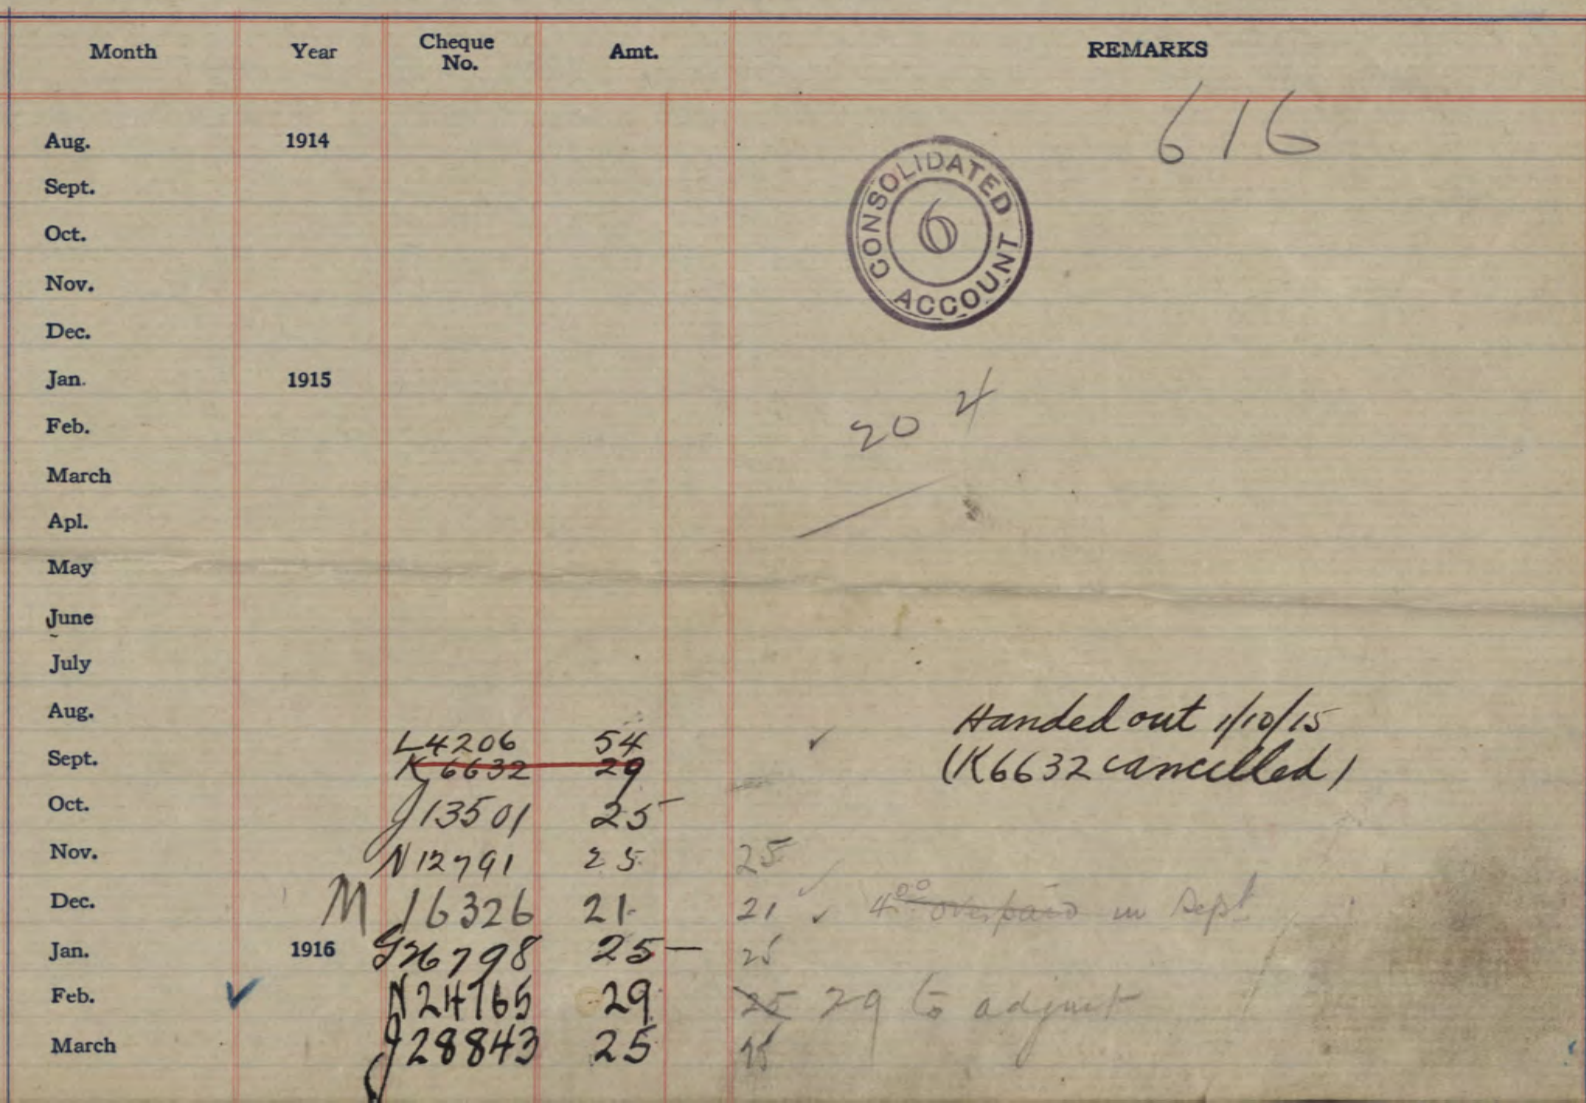 Month Year Cheque No. Amt. REMARKS
616
Aug. 1914
CONSOLIDATED ACCOUNT 6
Sept.
Oct.
Nov.
Dec.
Jan. 1915
20 4
Feb.
March
Apl.
May
June
July
Aug. Handed out 1/10/15
L4206 54 ✓
Sept. K6632 29 (K6632 cancelled)
Oct. J13501 25
Nov. N12791 25 25
Dec. M 16326 21 21 ✓ 4.00 overpaid in Sept
Jan. 1916 25 — 25
Feb. ✓ N24765 29 25 29 to adjust
March J28843 25 25